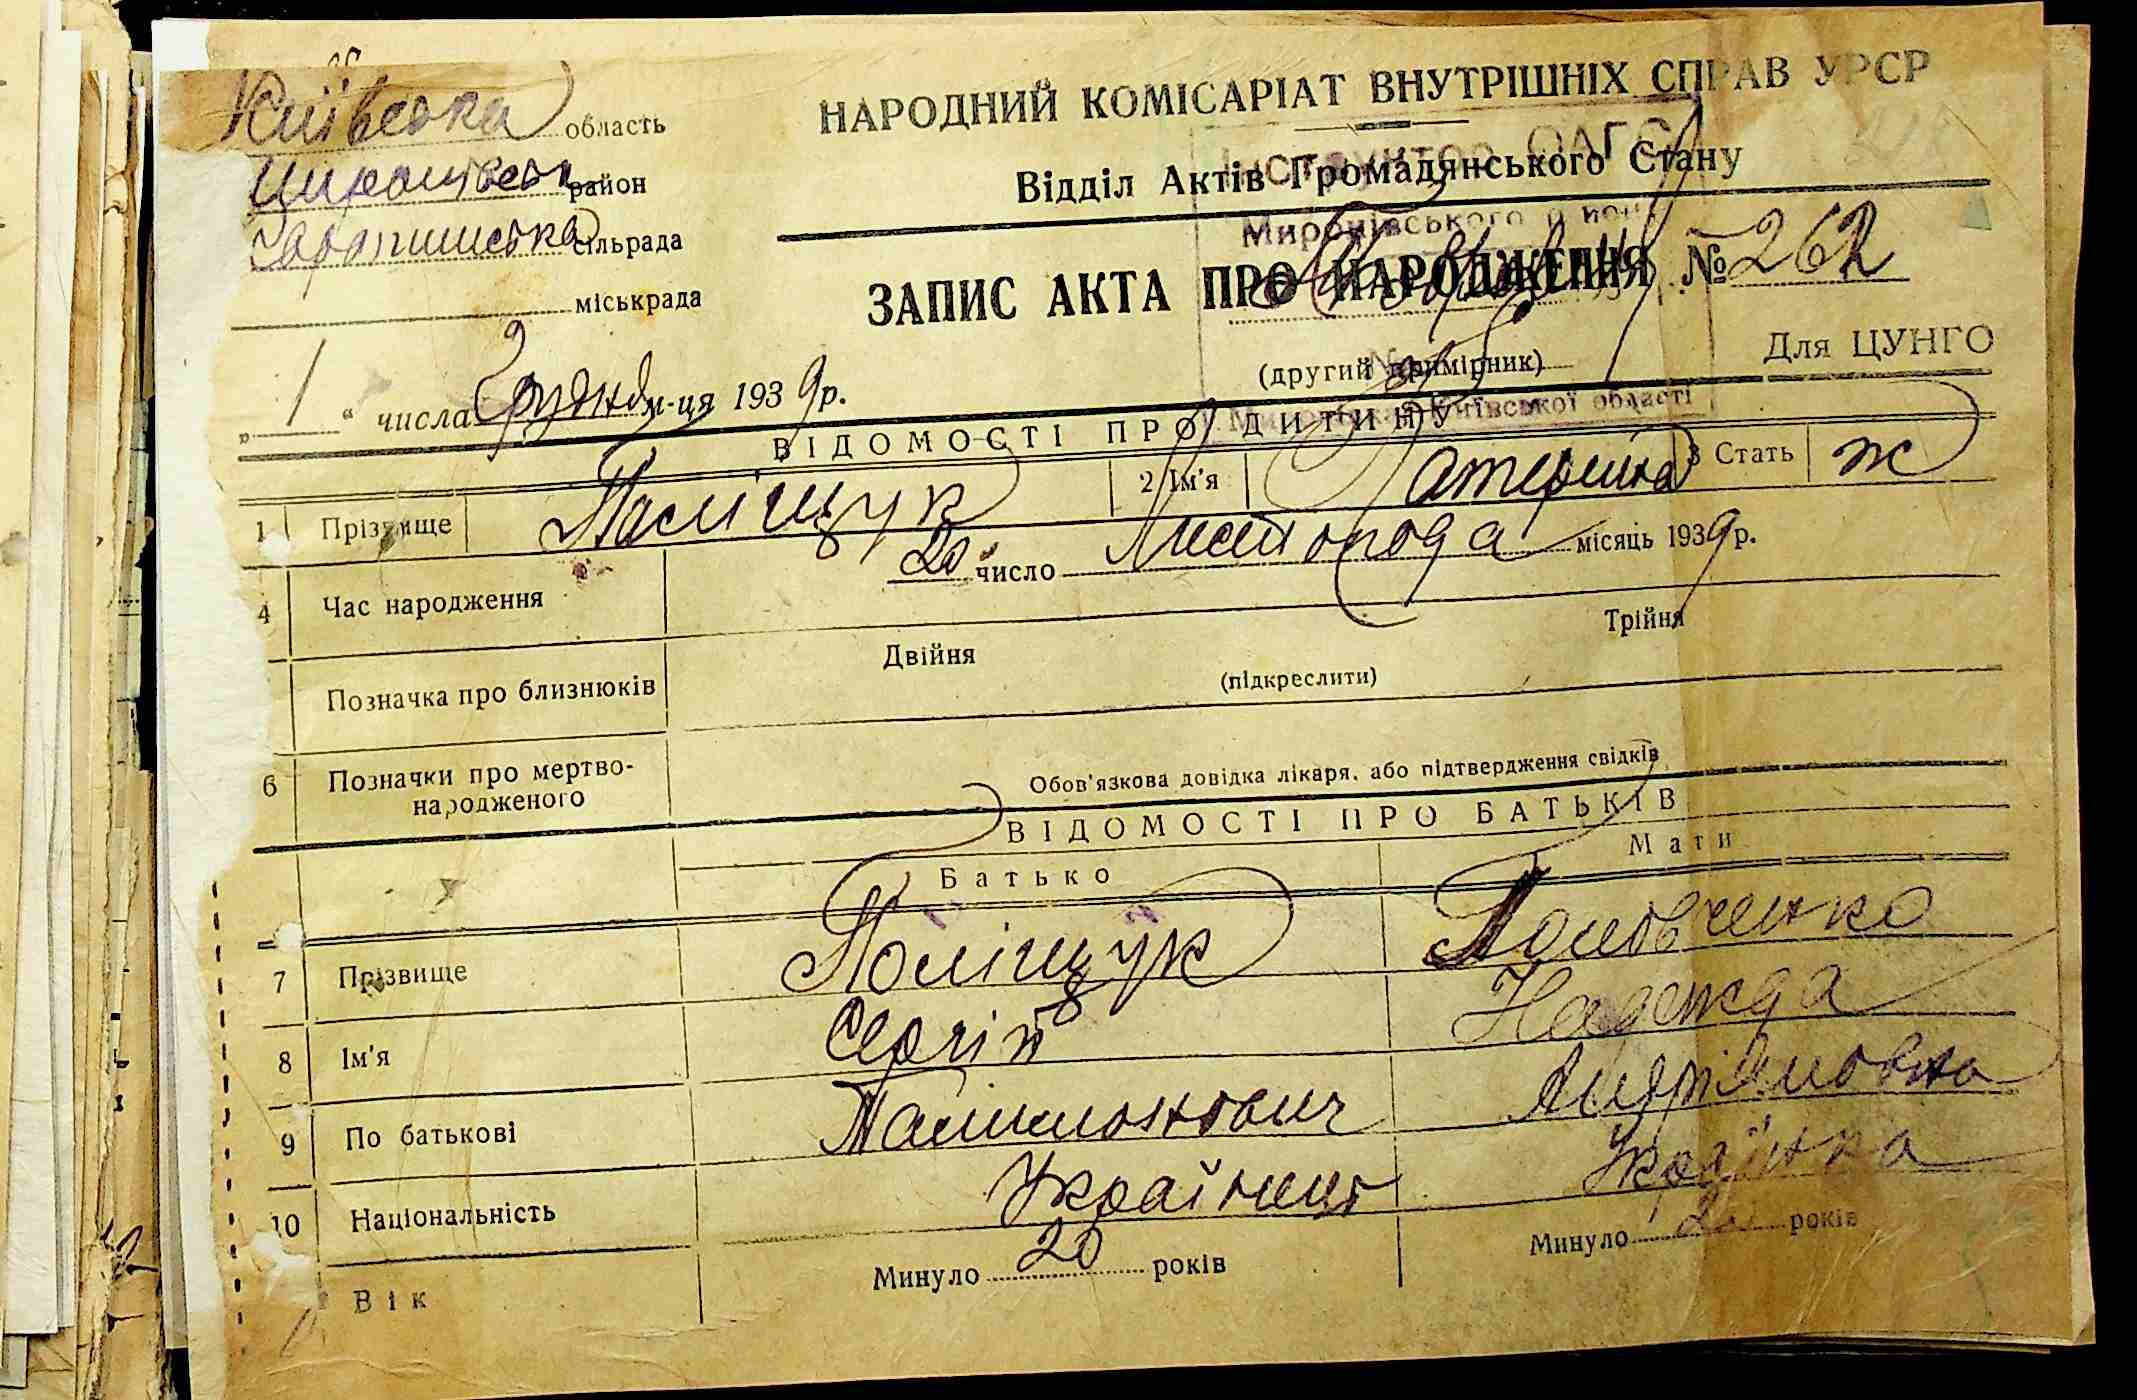 Київська область
НАРОДНИЙ КОМІСАРІАТ ВНУТРІШНІХ СПРАВ УРСР
район
Відділ Актів Громадянського Стану
сільрада
Миронівського
міськрада
ЗАПИС АКТА ПРО НАРОДЖЕННЯ № 262
(другий примірник)
Для ЦУНГО
„ 1 “ числа Грудня м-ця 1939 р.
Київської області
ВІДОМОСТІ ПРО ДИТИНУ
1 Прізвище Поліщук 2 Ім'я Катерина 3 Стать ж
4 Час народження 20 число Листопада місяць 1939 р.
Позначка про близнюків Двійня Трійня
(підкреслити)
6 Позначки про мертво-
народженого
Обов'язкова довідка лікаря, або підтвердження свідків
ВІДОМОСТІ ПРО БАТЬКІВ
Батько Мати
7 Прізвище Поліщук
8 Ім'я Сергій Надежда
9 По батькові
10 Національність Українець Українка
Вік Минуло 20 років Минуло 20 років